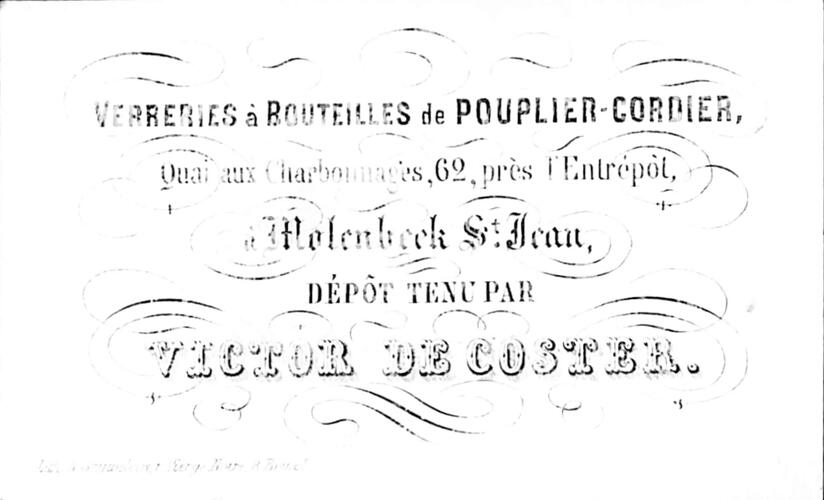 VERRERIES à BOUTEILLES de POUPLIER-CORDIER,
Quai aux Charbonnages, 62, près l'Entrépôt,
à Molenbeek St. Jean,
DÉPÔT TENU PAR
VICTOR DE COSTER.